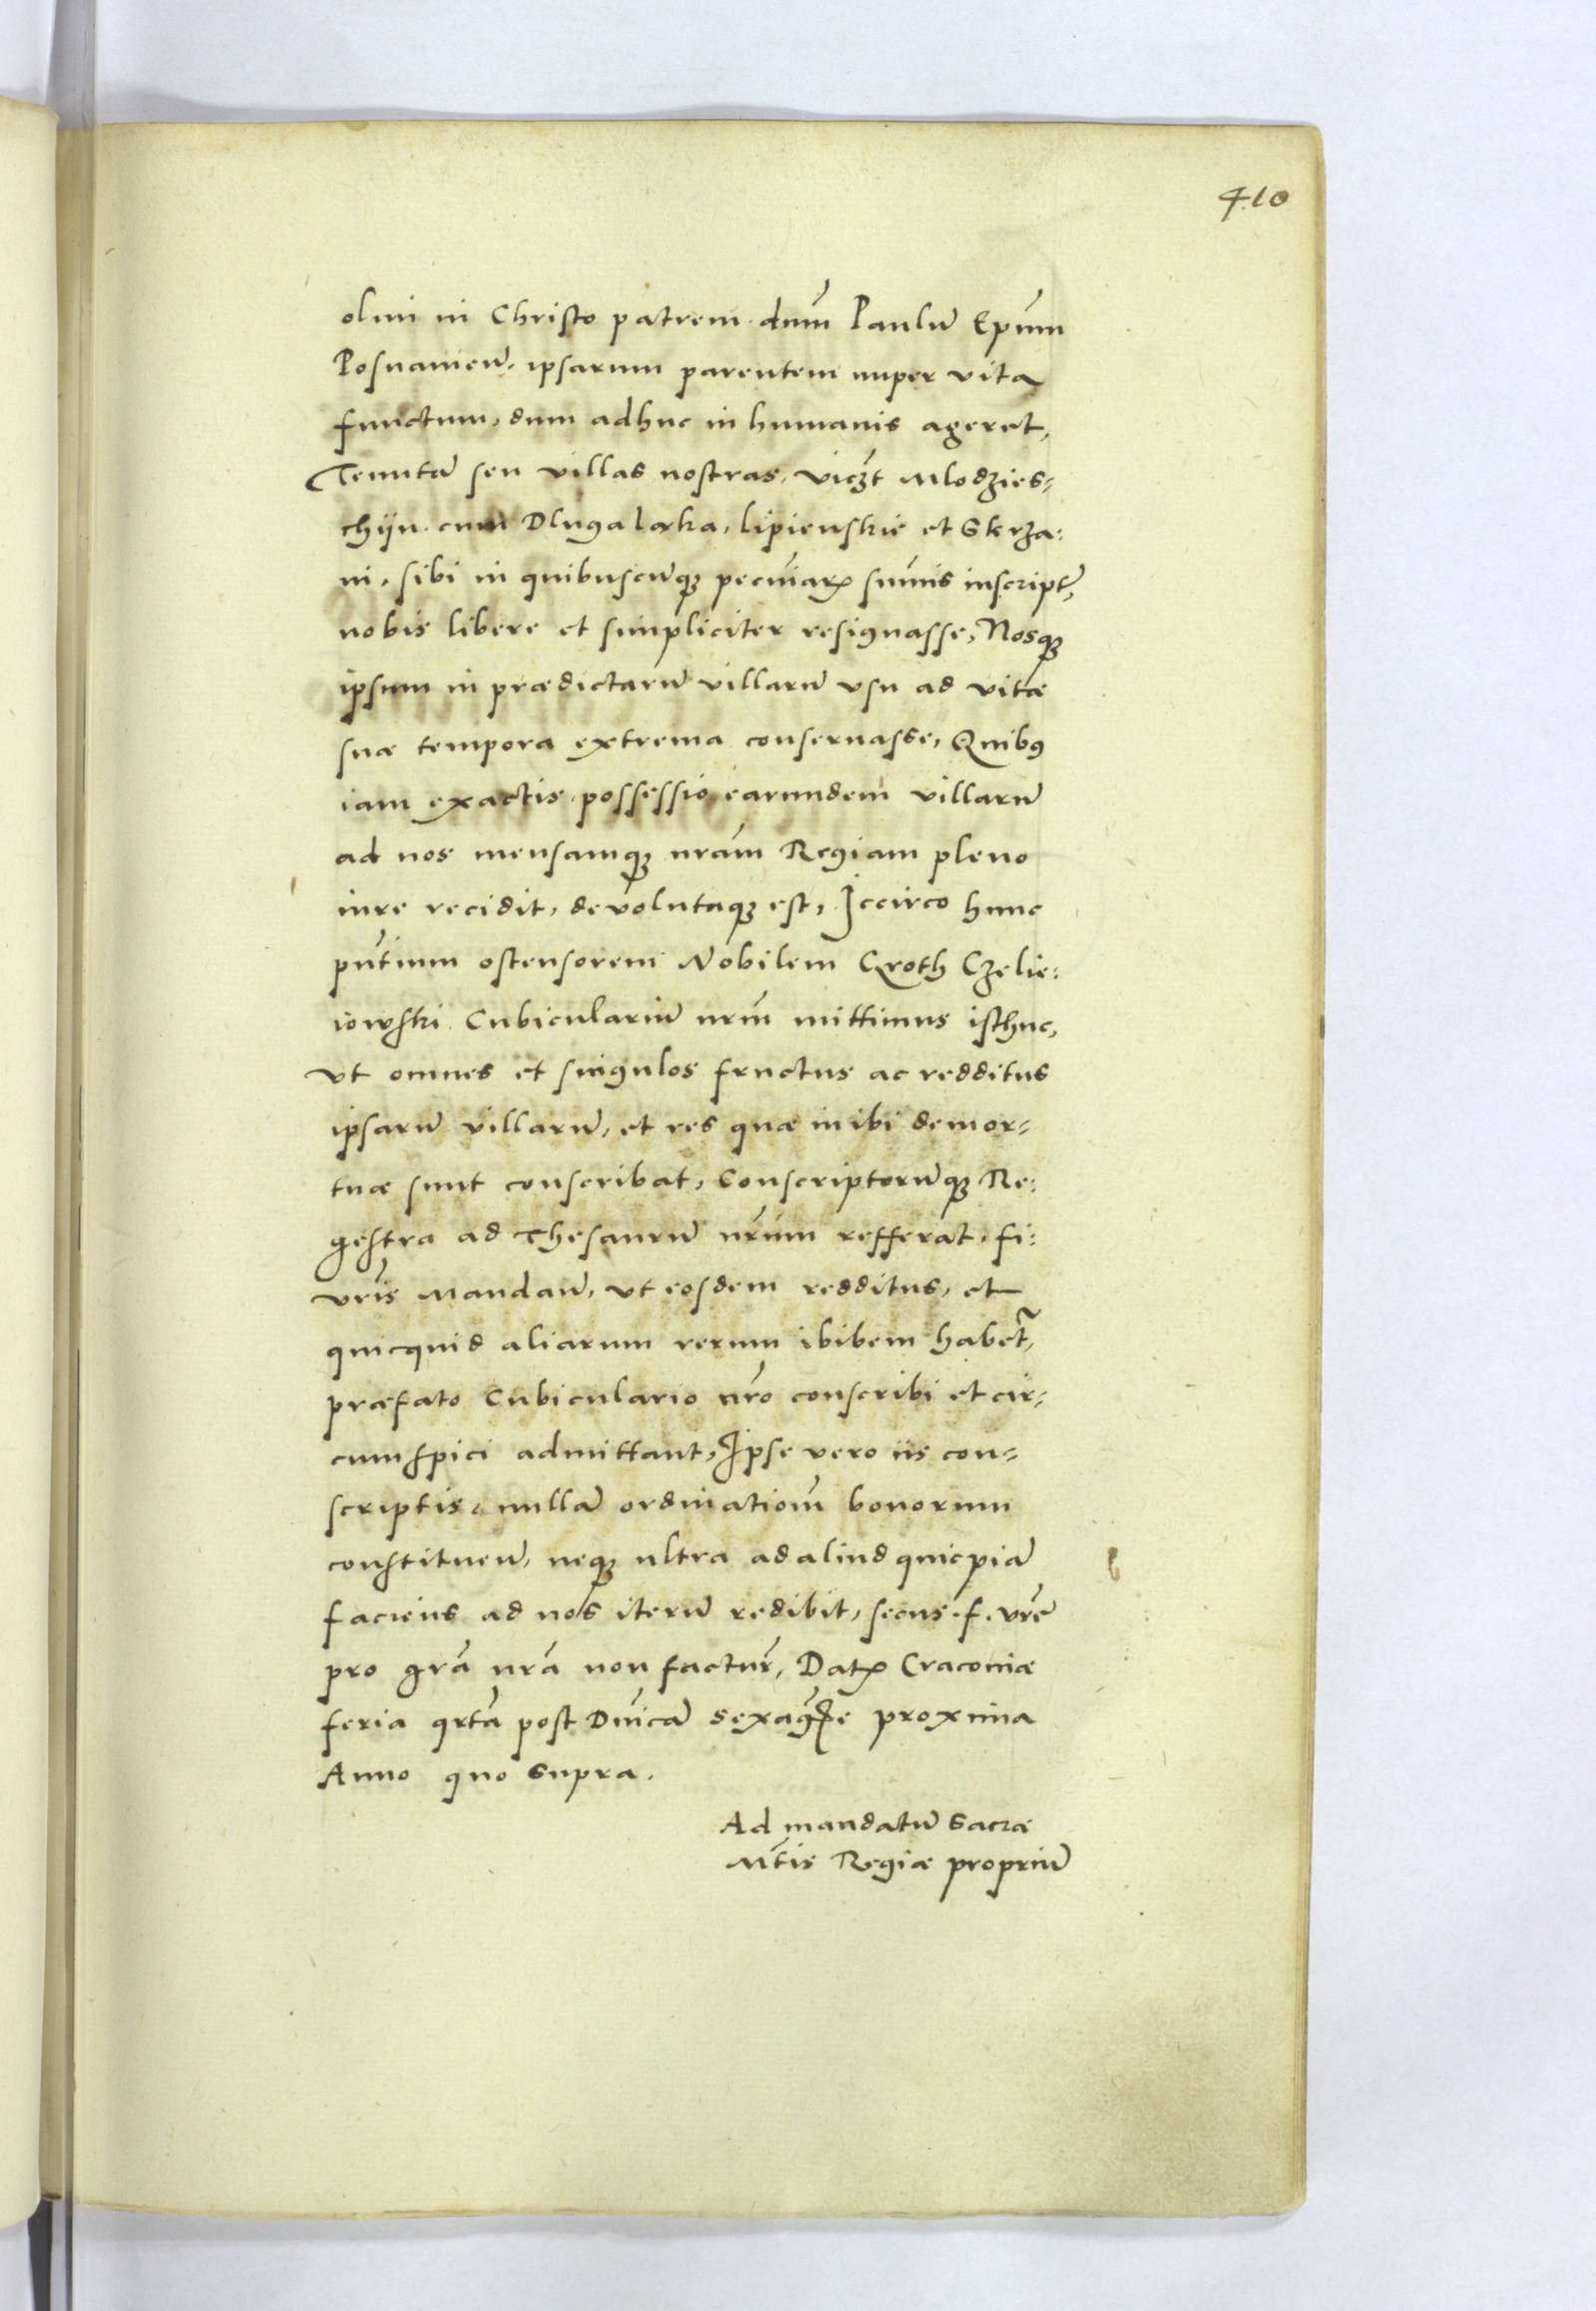 410
olim in Christo patrem dnm̄ Paulū Ep̄um
Posnanieñ, ipsarum parentem nuper vita
functum, dum adhuc in humanis ageret,
Tenutā seu villas nostras, vicz̄t Mlodzies=
chyn cum Dlugalaka, lipienskie et Skrza:
ni, sibi in quibuscūq3 pecuniarꝝ sum̄is inscript̄,
nobis libere et simpliciter resignasse, Nosq3
ipsum in prædictarū villarū vsu ad vitæ
suæ tempora extrema conseruasse, Quibꝰ
iam exactis, possessio earundem villarū
ad nos mensamq3 nrām Regiam pleno
iure recidit, devolutaq3 est, Iccirco hunc
pn̄tium ostensorem Nobilem Groth Czelie:
iowski Cubiculariū nrm̄ mittimus isthuc,
vt omnes et singulos fructus ac redditus
ipsarū villarū, et res quæ inibi demor=
tuæ sunt conscribat, Conscriptorūq3 Re:
gestra ad Thesaurū nr̄um refferat, fi:
vrīs Mandañ, vt eosdem redditus, et
quicquid aliarum rerum ibibem habet~,
præfato Cubiculario nrō conscribi et cir=
cumspici admittant, Ipse vero iis con=
scriptis, nullā ordinationm̄ bonorum
constitueñ, neq3 ultra ad aliud quicpiā
faciens ad nos iterū redibit, secus f. vrē
pro grā nrā non factur̄, Datꝝ Cracoviæ
feria qrtā post Dnīcā sexagᷓe proxima
Anno quo supra.
Ad mandatū Sacræ
Mt̄is Regiæ propriū